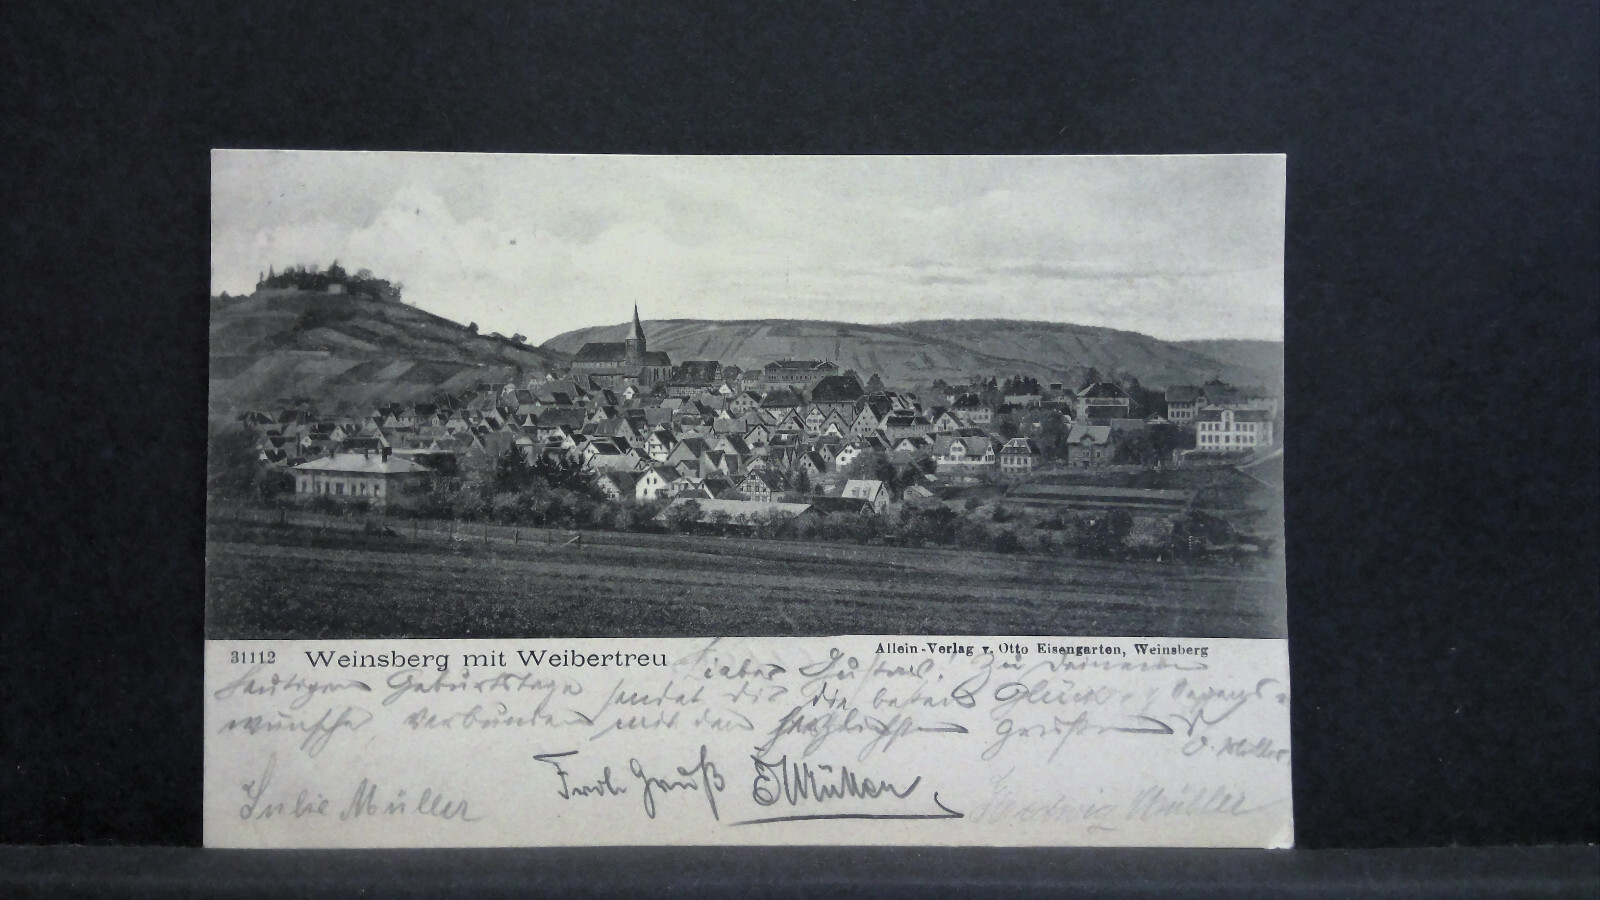 31112 Weinsberg mit Weibertreu
Allein-Verlag v. Otto Eisengarten, Weinsberg
Lieber Gustav! Zu Deinem
heutigen Geburtstage sendet dir die besten Glück- & Segens-
wünsche verbunden mit den herzlichsten Grüßen
O. Müller
Froh Gruß E Müller
Julie Müller
Hedwig Müller